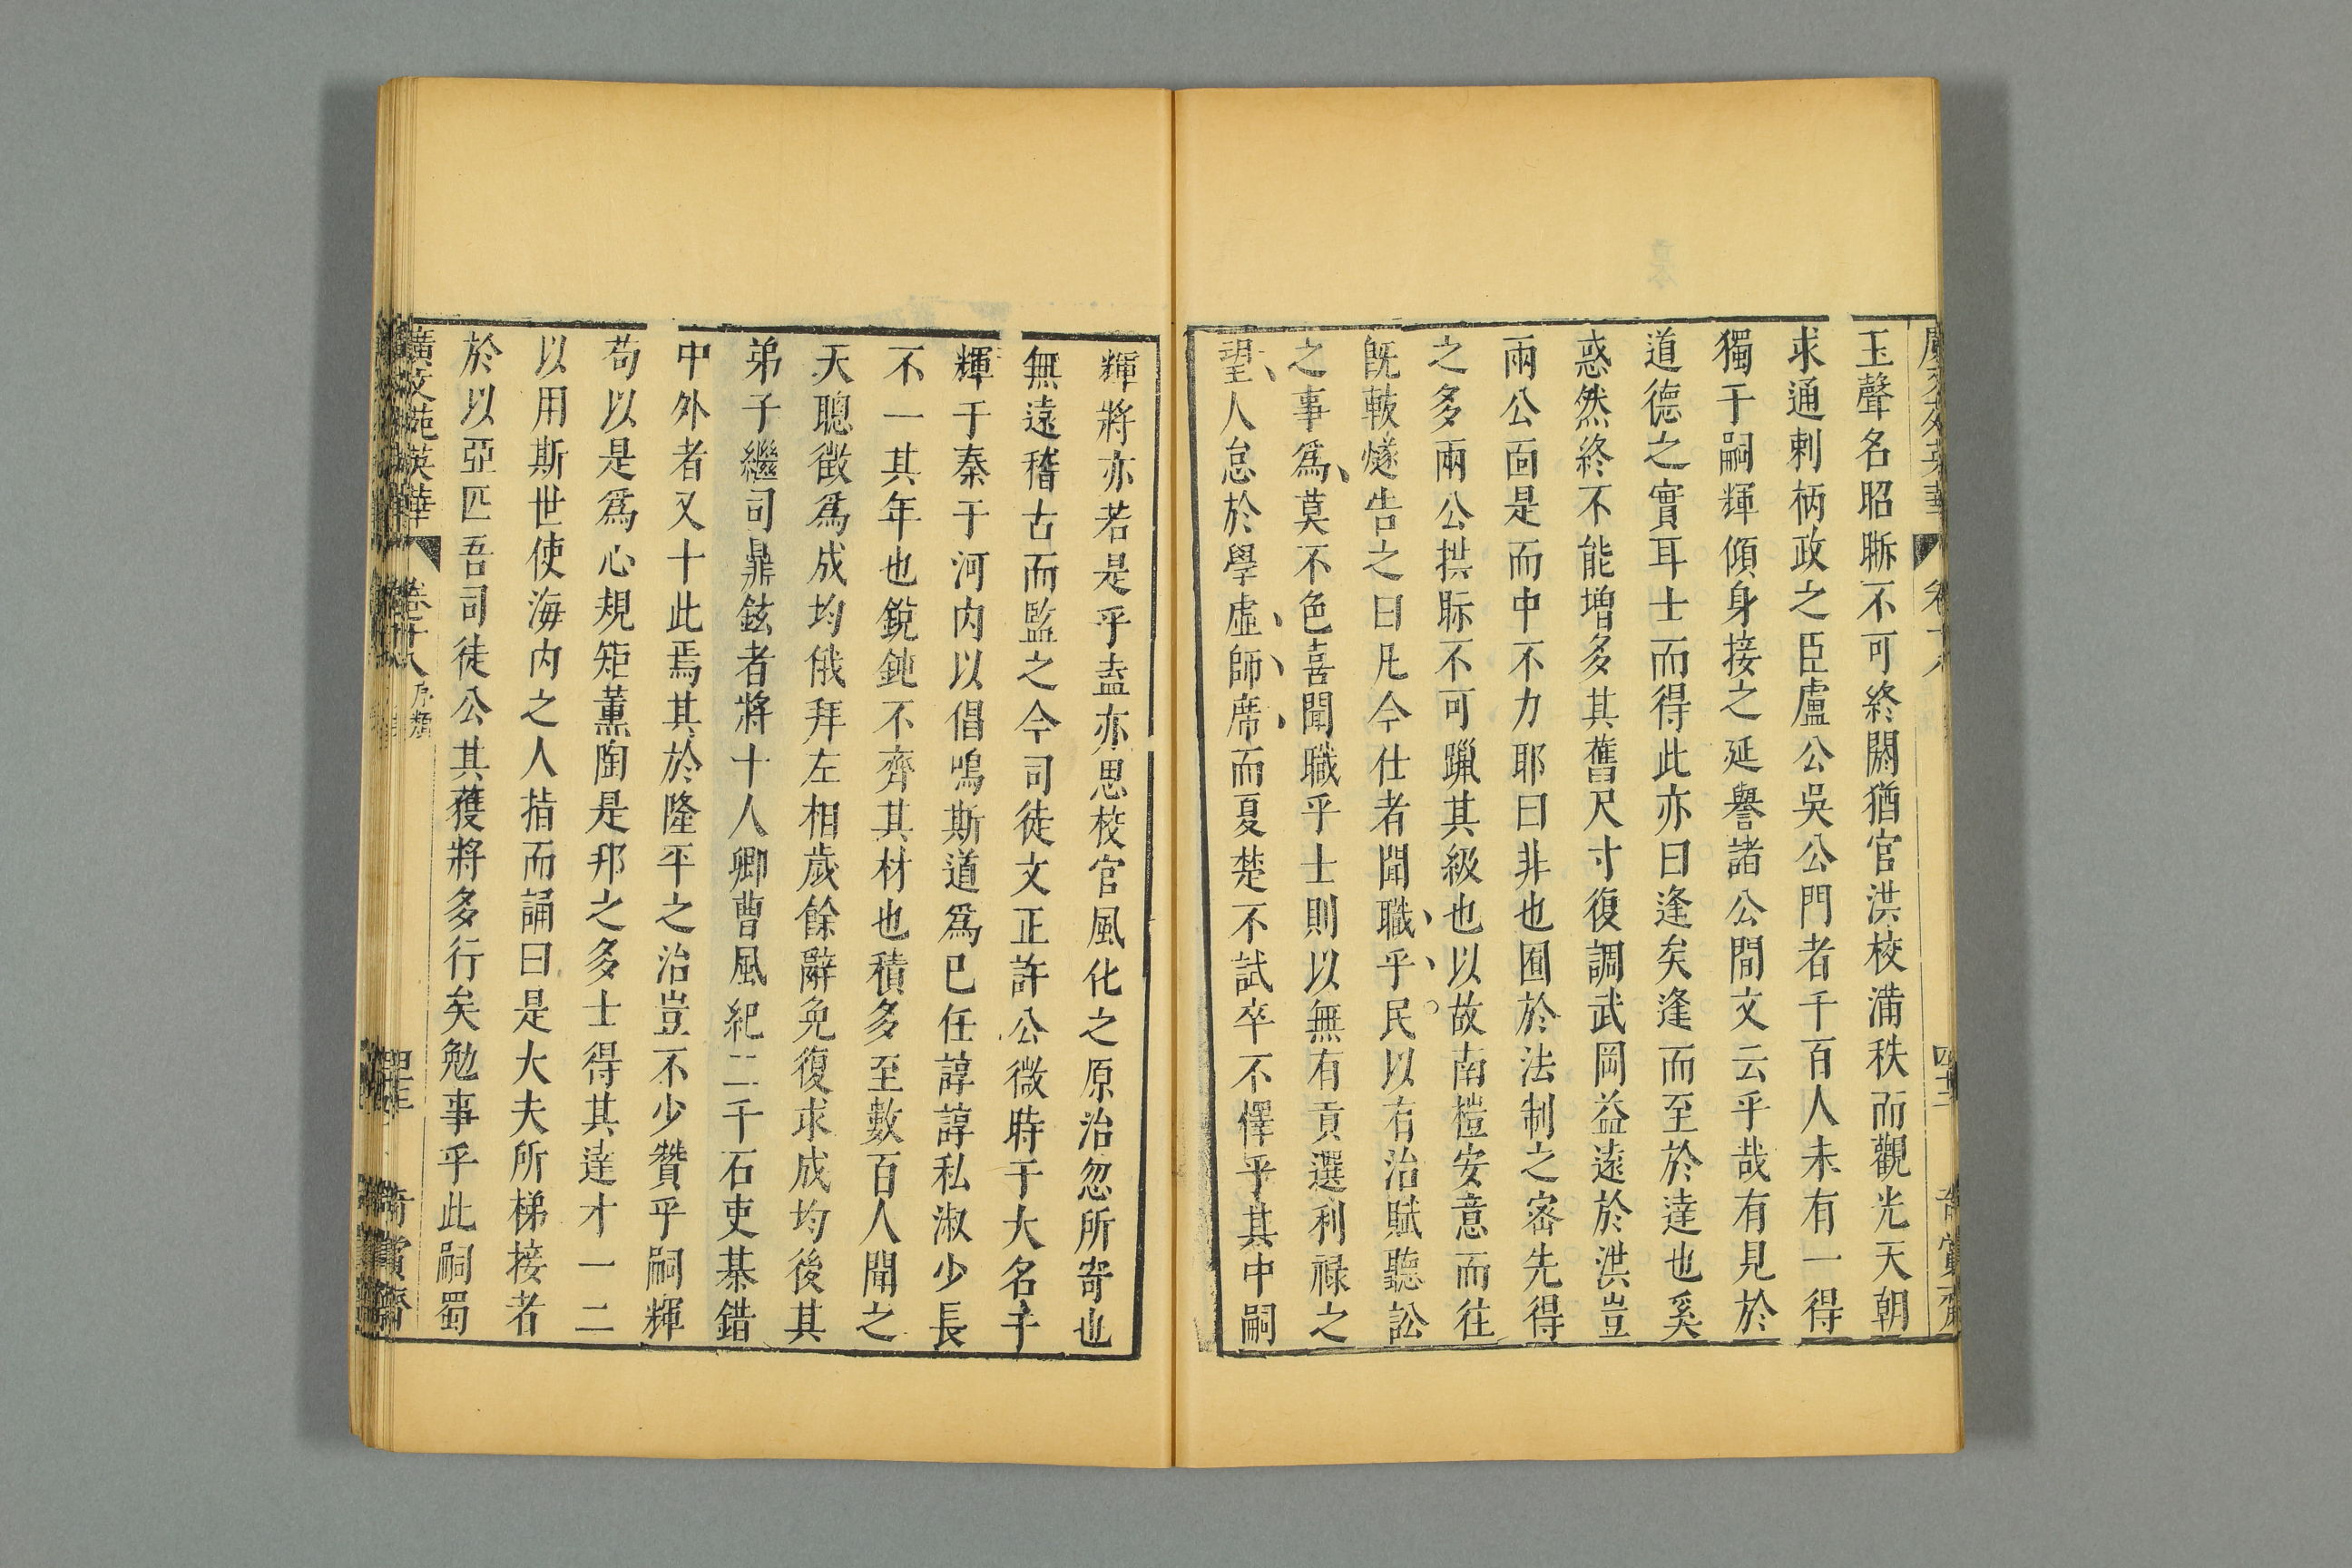 玉聲名昭晣不可終閼猶官洪校滿秩而觀光天朝
求通刺柄政之臣盧公吳公門者千百人未有一得
獨于嗣輝傾身接之延譽諸公間文云乎哉有見於
道德之實耳士而得此亦曰逢矣逢而至於達也奚
惑然終不能增多其舊尺寸復調武岡益遠於洪豈
兩公面是而中不力耶曰非也囿於法制之密先得
之多兩公拱眎不可躐其級也以故南榿安意而往
旣軷燧告之曰凡今仕者聞職乎民以有治賦聽訟
之事爲莫不色喜聞職乎士則以無有貢選利祿之
望人怠於學虛師席而夏楚不試卒不懌乎其中嗣
輝將亦若是乎盍亦思校官風化之原治忽所寄也
無遠稽古而監之今司徒文正許公微時于大名于
輝于秦于河內以倡鳴斯道爲已任諄諄私淑少長
不一其年也銳鈍不齊其材也積多至數百人聞之
天聰徵爲成均俄拜左相歲餘辭免復求成均後其
弟子繼司鼎鉉者將十人卿曹風紀二千石吏棊錯
中外者又十此焉其於隆平之治豈不少贊乎嗣輝
苟以是爲心規矩薰陶是邦之多士得其達才一二
以用斯世使海內之人指而誦曰是大夫所梯接者
於以亞匹吾司徒公其獲將多行矣勉事乎此嗣蜀
廣文苑英華 卷十八 序類 四十三 奇賞齋